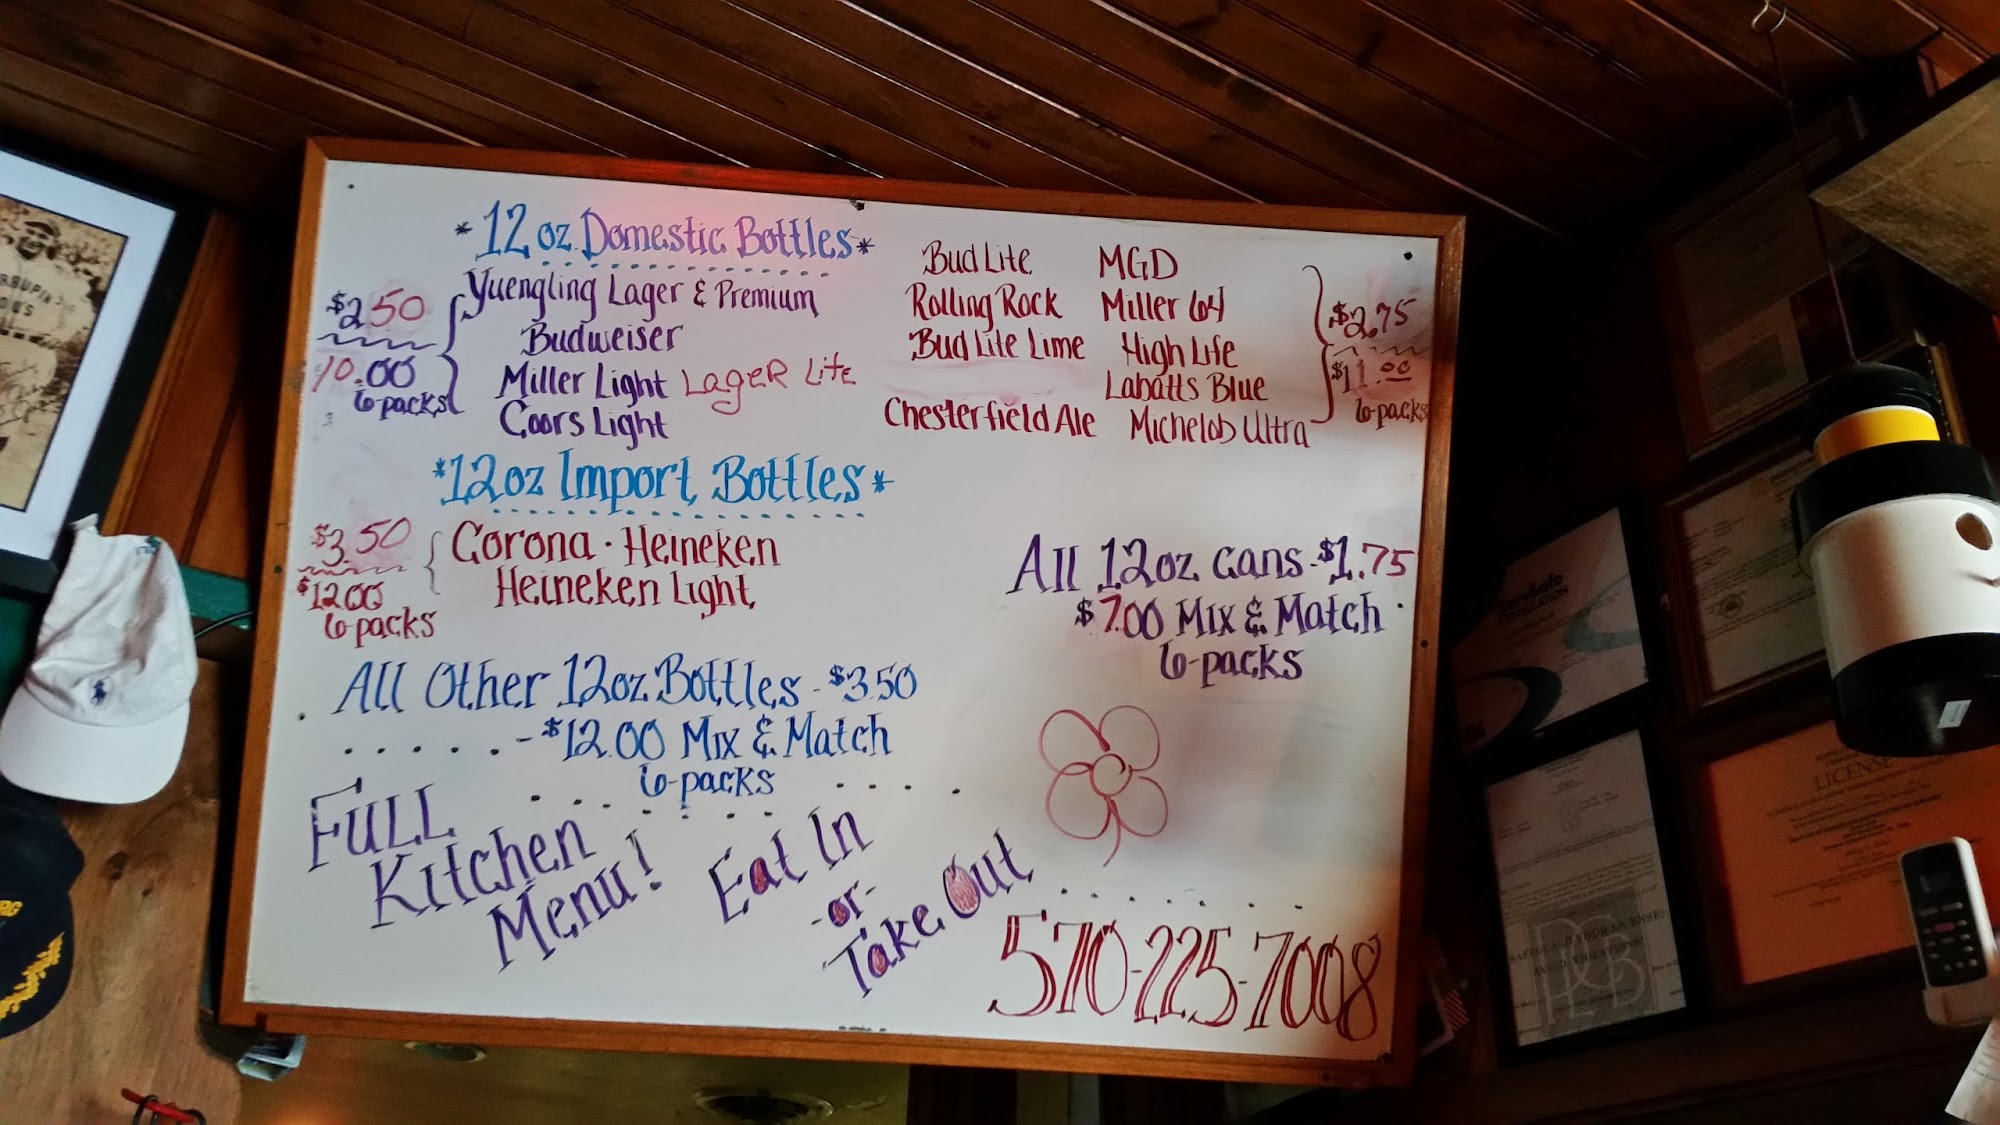 *12oz Domestic Bottles*
$2.50
10.00
6-packs
Yuengling Lager & Premium
Budweiser
Miller Light Lager Lite
Coors Light
Bud Lite MGD
Rolling Rock Miller 64
Bud Lite Lime High Life
Labatts Blue
Chesterfield Ale Michelob Ultra
$2.75
$11.00
6-packs
*12oz Import Bottles*
$3.50
$12.00
6-packs
Corona · Heineken
Heineken Light
All 12oz cans - $1.75
$7.00 Mix & Match
6-packs
All Other 12oz Bottles - $3.50
- $12.00 Mix & Match
6-packs
Full
Kitchen
Menu!
Eat In
-or-
Take Out
570-225-7008
ServSafe
CERTIFICATION
LICENSE
SAFEGUARD YOUR LICENSE:
AVOID VIOLATIONS!
PLCB